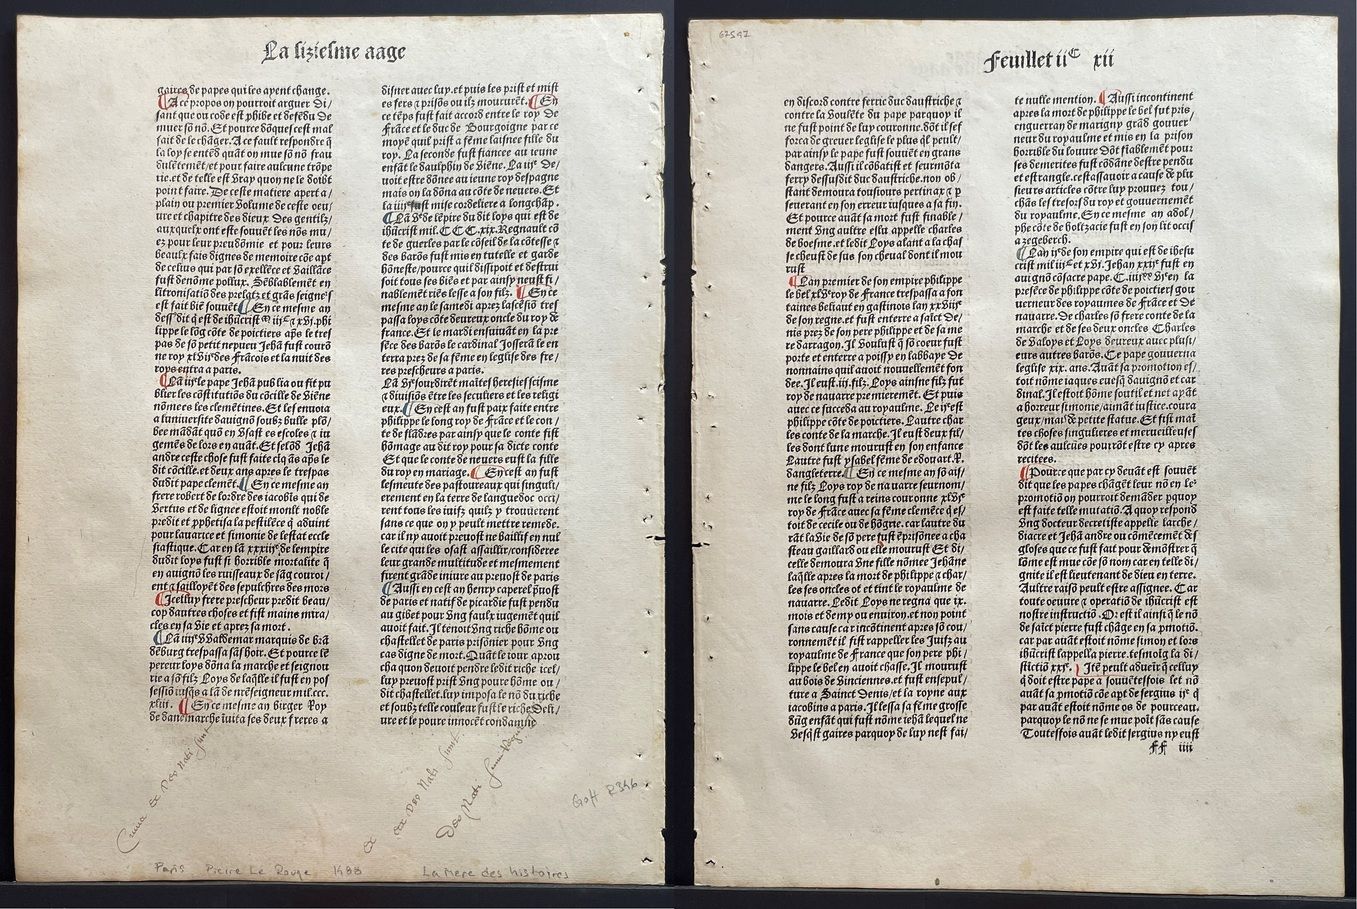 La siziesme aage
gaires de papes qui les ayent change.
A ce propos on pourroit arguer di/
sant que ou code est phibe et defēdu de
muer sō nō. Et pource dōques cest mal
fait de le chāger. A ce fault respondre q̄
la loy se entēd quāt on mue sō nō frau
dulētemēt et pour faire aulcune trōpe
rie. et de telle est vray quon ne le doibt
point faire. De ceste matiere apert a/
plain ou premier volume de ceste oeu/
ure et chapitre des dieux des gentilz/
auxquelx ont este souuēt les nōs mu/
ez pour leur preudōmie et pour leurs
beaulx fais dignes de memoire cōe apt
de celius qui par sō exellēce et vaillāce
fust denōme pollux. Sēblablemēt en
litronisatiō des prelatz et grās seigne's
est fait biē souuēt En ce mesme an
philippe le lōg cōte de poictiers aps le tres
pas de sō petit nepueu Jehā fust courō
des Frācois et la nuit des
roys entra a paris.
le pape Jehā publia ou fit pu
blier les cōstitutiōs du cōcille de Viēne
nōmees les clemētines. Et les enuoia
a luniuersite dauignō soubz bulle plō/
bee mādāt quō en vsast es escoles et iu
gemēs de lors en auāt. Et selōd Jehā
andre ceste chose fust faite cīq ās aps le
dit cōcille. et deux ans apres le trespas
dudit pape clemēt. En ce mesme an
frere robert de lordre des iacobīs qui de
Vertus et de lignee estoit moult noble
predit et pphetisa la pestilēce q̄ aduint
pour lauarice et simonie de lestat eccle
siastique. Car en lā xxxiiie de lempire
dudit loys fust si horrible mortalite q̄
en auignō les ruisseaux de sāg couroi/
ent et sailloyēt des sepulchres des mors
Icelluy frere prescheur predit beau/
cop dautres choses et fist mains mira/
cles en sa vie et aprez sa mort.
Waldemar marquis de brā
dēburg trespassa sās hoir. Et pource lē
pereur loys dōna la marche et seignou
rie a sō filz Loys de laq̄lle il fust en pos
sessiō iusq̄s a lā de nreseigneur mil.ccc.
xliii. En ce mesme an birger Roy
de danemarche iuita ses deux freres a
disner auec luy. et puis les prist et mist
es fers et prisōs ou ilz moururēt. En
ce tēps fust fait accord entre le roy de
Frāce et le duc de Bourgoigne par ce
moyē quil prist a fēme laisnee fille du
roy. La seconde fust fiancee au ieune
enfāt le daulphin de viēne. La iiie de/
uoit estre dōnee au ieune roy despagne
mais on la dōna au cōte de neuers. Et
la iiiie fust mise cordeliere a longchāp.
Lā ve de lēpire du dit loys qui est de
ihūcrist mil.CCC.xix. Regnault cō
te de guerles par le cōseil de la cōtesse et
des barōs fust mis en tutelle et garde
hōneste/pource quil dissipoit et destrui
soit tous ses biēs et par ainsy neust fi/
nablemēt riēs lesse a son filz. En ce
mesme an le samedi aprez lascēsiō tres
passa loys cōte deureux oncle du roy de
france. Et le mardi ensuiuāt en la pre
sēce des barōs le cardinal Josserā le en
terra prez de sa fēme en leglise des fre/
res prescheurs a paris.
sourdirēt maītes heresies scisme
et diuisiōs ētre les seculiers et les religi
eux. En cest an fust paix faite entre
philippe le long roy de Frāce et le con/
te de flādres par ainsy que le conte fist
hōmage au dit roy pour sa dicte conte
Et que le conte de neuers eust la fille
du roy en mariage. En cest an fust
lesmeute des pastoureaux qui singuli/
erement en la terre de languedoc occi/
rent tous les iuifz quilz y trouuerent
sans ce que on y peult mettre remede.
car il ny auoit preuost ne baillif en nul
le cite qui les osast assaillir/consideree
leur grande multitude et mesmement
firent grāde iniure au preuost de paris
Aussi en cest an henry caperel puost
de paris et natif de picardie fust pendu
au gibet pour vng faulx iugemēt quil
auoit fait. Il tenoit vng riche hōme ou
chastellet de paris prisōnier pour vng
cas digne de mort. Quāt le iour aprou
cha quon deuoit pendre ledit riche icel/
luy preuost prist vng poure hōme ou/
dit chastellet. luy imposa le nō du riche
et soubz telle couleur fust le riche deli/
ure et le poure innocēt condamne
Goff R346
Paris Pierre Le Rouge 1488 La mere des histoires
67547
Feuillet iiC xii
en discord contre ferric duc daustriche et
contre la voulēte du pape parquoy il
ne fust point de luy couronne. dōt il sef
forca de greuer leglise le plus q̄l peult/
par ainsy le pape fust souuēt en grans
dangers. Aussi il cōbatist et seurmōta
ferry dessusdit duc daustriche. non ob/
stant demoura tousiours pertinax et p
seuerant en son erreur iusques a sa fin.
Et pource auāt sa mort fust finable/
ment vng aultre esleu appelle charles
de boesme. et ledit Loys alant a la chas
se cheust de sus son cheual dont il mou
rust
Lan premier de son empire philippe
le bel xlve roy de France trespassa a fon
taines beliaut en gastinois lan xxviiie
de son regne. et fust enterre a saīct De/
nis prez de son pere philippe et de sa me
re darragon. Il voulust q̄ sō coeur fust
porte et enterre a poissy en labbaye de
nonnains quil auoit nouuellemēt fon
dee. Il eust.iii.filz. Loys ainsne filz fut
roy de nauarre premieremēt. Et puis
auec ce succeda au royaulme. Le iie est
philippe cōte de poictiers. Lautre char
les conte de la marche. Il eust deux fil/
les dont lune mourust en son enfance
Lautre fust ysabel fēme de edouart. R.
dangleterre. En ce mesme an sō ais/
ne filz Loys roy de nauarre seurnom/
me le long fust a reins couronne xlvie
roy de Frāce auec sa fēme clemēce q̄ es/
toit de cecile ou de hōgrie. car lautre du
rāt la vie de sō pere fust ēprisōnee a cha
steau gaillard ou elle mourust Et di/
celle demoura vne fille nōmee Jehāne
laq̄lle apres la mort de philippe et char/
les ses oncles ot et tint le royaulme de
nauarre. Ledit Loys ne regna que ix.
mois et demy ou environ. et non point
sans cause car incōtinent apres sō cou/
ronnement il fist rappeller les Juifz au
royaulme de France que son pere phi/
lippe le bel en auoit chasse. Il mourust
au bois de vinciennes. et fust ensepul/
ture a Sainct Denis/et la royne aux
iacobins a paris. Il lessa sa fēme grosse
dūg enfāt qui fust nōme iehā lequel ne
vesq̄st gaires parquoy de luy nest fai/
te nulle mention. Aussi incontinent
apres la mort de philippe le bel fut pris/
enguerran de marigny grād gouuer/
neur du royaulme et mis en la prison
horrible du louure dōt finablemēt pour
ses demerites fust cōdāne destre pendu
et estrangle. cestassauoir a cause de plu
sieurs articles cōtre luy prouuez tou/
chās les tresors du roy et gouuernemēt
du royaulme. En ce mesme an adol/
phe cōte de holtzacie fust en son lit occis
a zegeberch.
Lan iie de son empire qui est de ihesu
crist mil iiiC et xvi. Jehan xxiie fust en
auignō sacre pape. en la
presēce de philippe cōte de poictiers gou
uerneur des royaumes de Frāce et de
nauarre. De charles sō frere conte de la
marche et de ses deux oncles Charles
de valoys et Loys deureux auec plusi/
eurs autres barōs. Ce pape gouuerna
leglise xix. ans. Auāt sa promotion es/
toit nōme iaques euesq̄ dauignō et car
dinal. Il estoit hōme soutil et net ayāt
a horreur simonie/aimāt iustice. coura
geux/mais de petite statue. Et fist mai
tes choses singulieres et merueilleuses
dōt les aulcues pourrōt estre cy apres
recitees.
Pource que par cy deuāt est souuēt
dit que les papes chāgēt leur nō en le'
promotiō on pourroit demāder pquoy
est faite telle mutatiō. A quoy respond
vng docteur decretiste appelle larche/
diacre et Jehā andre ou cōmēcemēt des
gloses que ce fust fait pour demōstrer q̄
lōme est mue cōe sō nom car en telle di/
gnite il est lieutenant de dieu en terre.
Aultre raisō peult estre assignee. Car
toute oeuure et operatiō de ihūcrist est
nostre instructiō. Or est il ainsi q̄ le nō
de saīct pierre fust chāge en sa pmotiō.
car par auāt estoit nōme simon et lors
ihūcrist lappella pierre. tesmoīg la di/
stīctiō xxie. Itē peult aduenir q̄ celluy
q̄ doit estre pape a souuētesfois let nō
auāt sa pmotiō cōe apt de sergius iie q̄
par auāt estoit nōme os de pourceau.
parquoy le nō ne se mue poīt sās cause
Toutesfois auāt ledit sergius ny eust
ff iiii